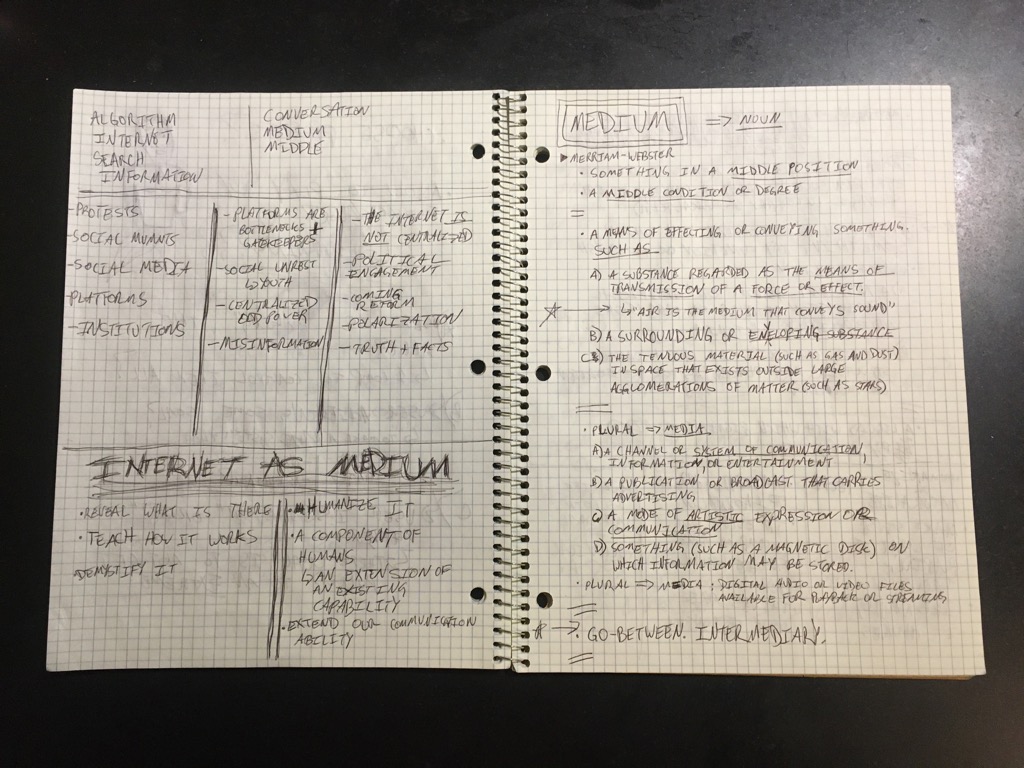 ALGORITHM
INTERNET
SEARCH
INFORMATION
CONVERSATION
MEDIUM
MIDDLE
-PROTESTS
-SOCIAL MVMNTS
-SOCIAL MEDIA
-PLATFORMS
-INSTITUTIONS
-PLATFORMS ARE
BOTTLENECKS +
GATEKEEPERS
-SOCIAL UNREST
YOUTH
-CENTRALIZED
POWER
-MISINFORMATION
-THE INTERNET IS
NOT CENTRALIZED
-POLITICAL
ENGAGEMENT
-COMING
REFORM
-POLARIZATION
-TRUTH + FACTS
INTERNET AS MEDIUM
•REVEAL WHAT IS THERE
•TEACH HOW IT WORKS
DEMYSTIFY IT
•HUMANIZE IT
•A COMPONENT OF
HUMANS
↳AN EXTENSION OF
AN EXISTING
CAPABILITY
•EXTEND OUR COMMUNICATION
ABILITY
MEDIUM => NOUN
▶MERRIAM-WEBSTER
• SOMETHING IN A MIDDLE POSITION
• A MIDDLE CONDITION OR DEGREE
=
• A MEANS OF EFFECTING OR CONVEYING SOMETHING.
SUCH AS
A) A SUBSTANCE REGARDED AS THE MEANS OF
TRANSMISSION OF A FORCE OR EFFECT.
☆ → ↳"AIR IS THE MEDIUM THAT CONVEYS SOUND"
B) A SURROUNDING OR ENVELOPING SUBSTANCE
C) THE TENUOUS MATERIAL (SUCH AS GAS AND DUST)
IN SPACE THAT EXISTS OUTSIDE LARGE
AGGLOMERATIONS OF MATTER (SUCH AS STARS)
=
• PLURAL => MEDIA
A) A CHANNEL OR SYSTEM OF COMMUNICATION,
INFORMATION, OR ENTERTAINMENT
B) A PUBLICATION OR BROADCAST THAT CARRIES
ADVERTISING
C) A MODE OF ARTISTIC EXPRESSION OR
COMMUNICATION
D) SOMETHING (SUCH AS A MAGNETIC DISK) ON
WHICH INFORMATION MAY BE STORED.
• PLURAL => MEDIA : DIGITAL AUDIO OR VIDEO FILES
AVAILABLE FOR PLAYBACK OR STREAMING
=
☆ → • GO-BETWEEN. INTERMEDIARY.
=